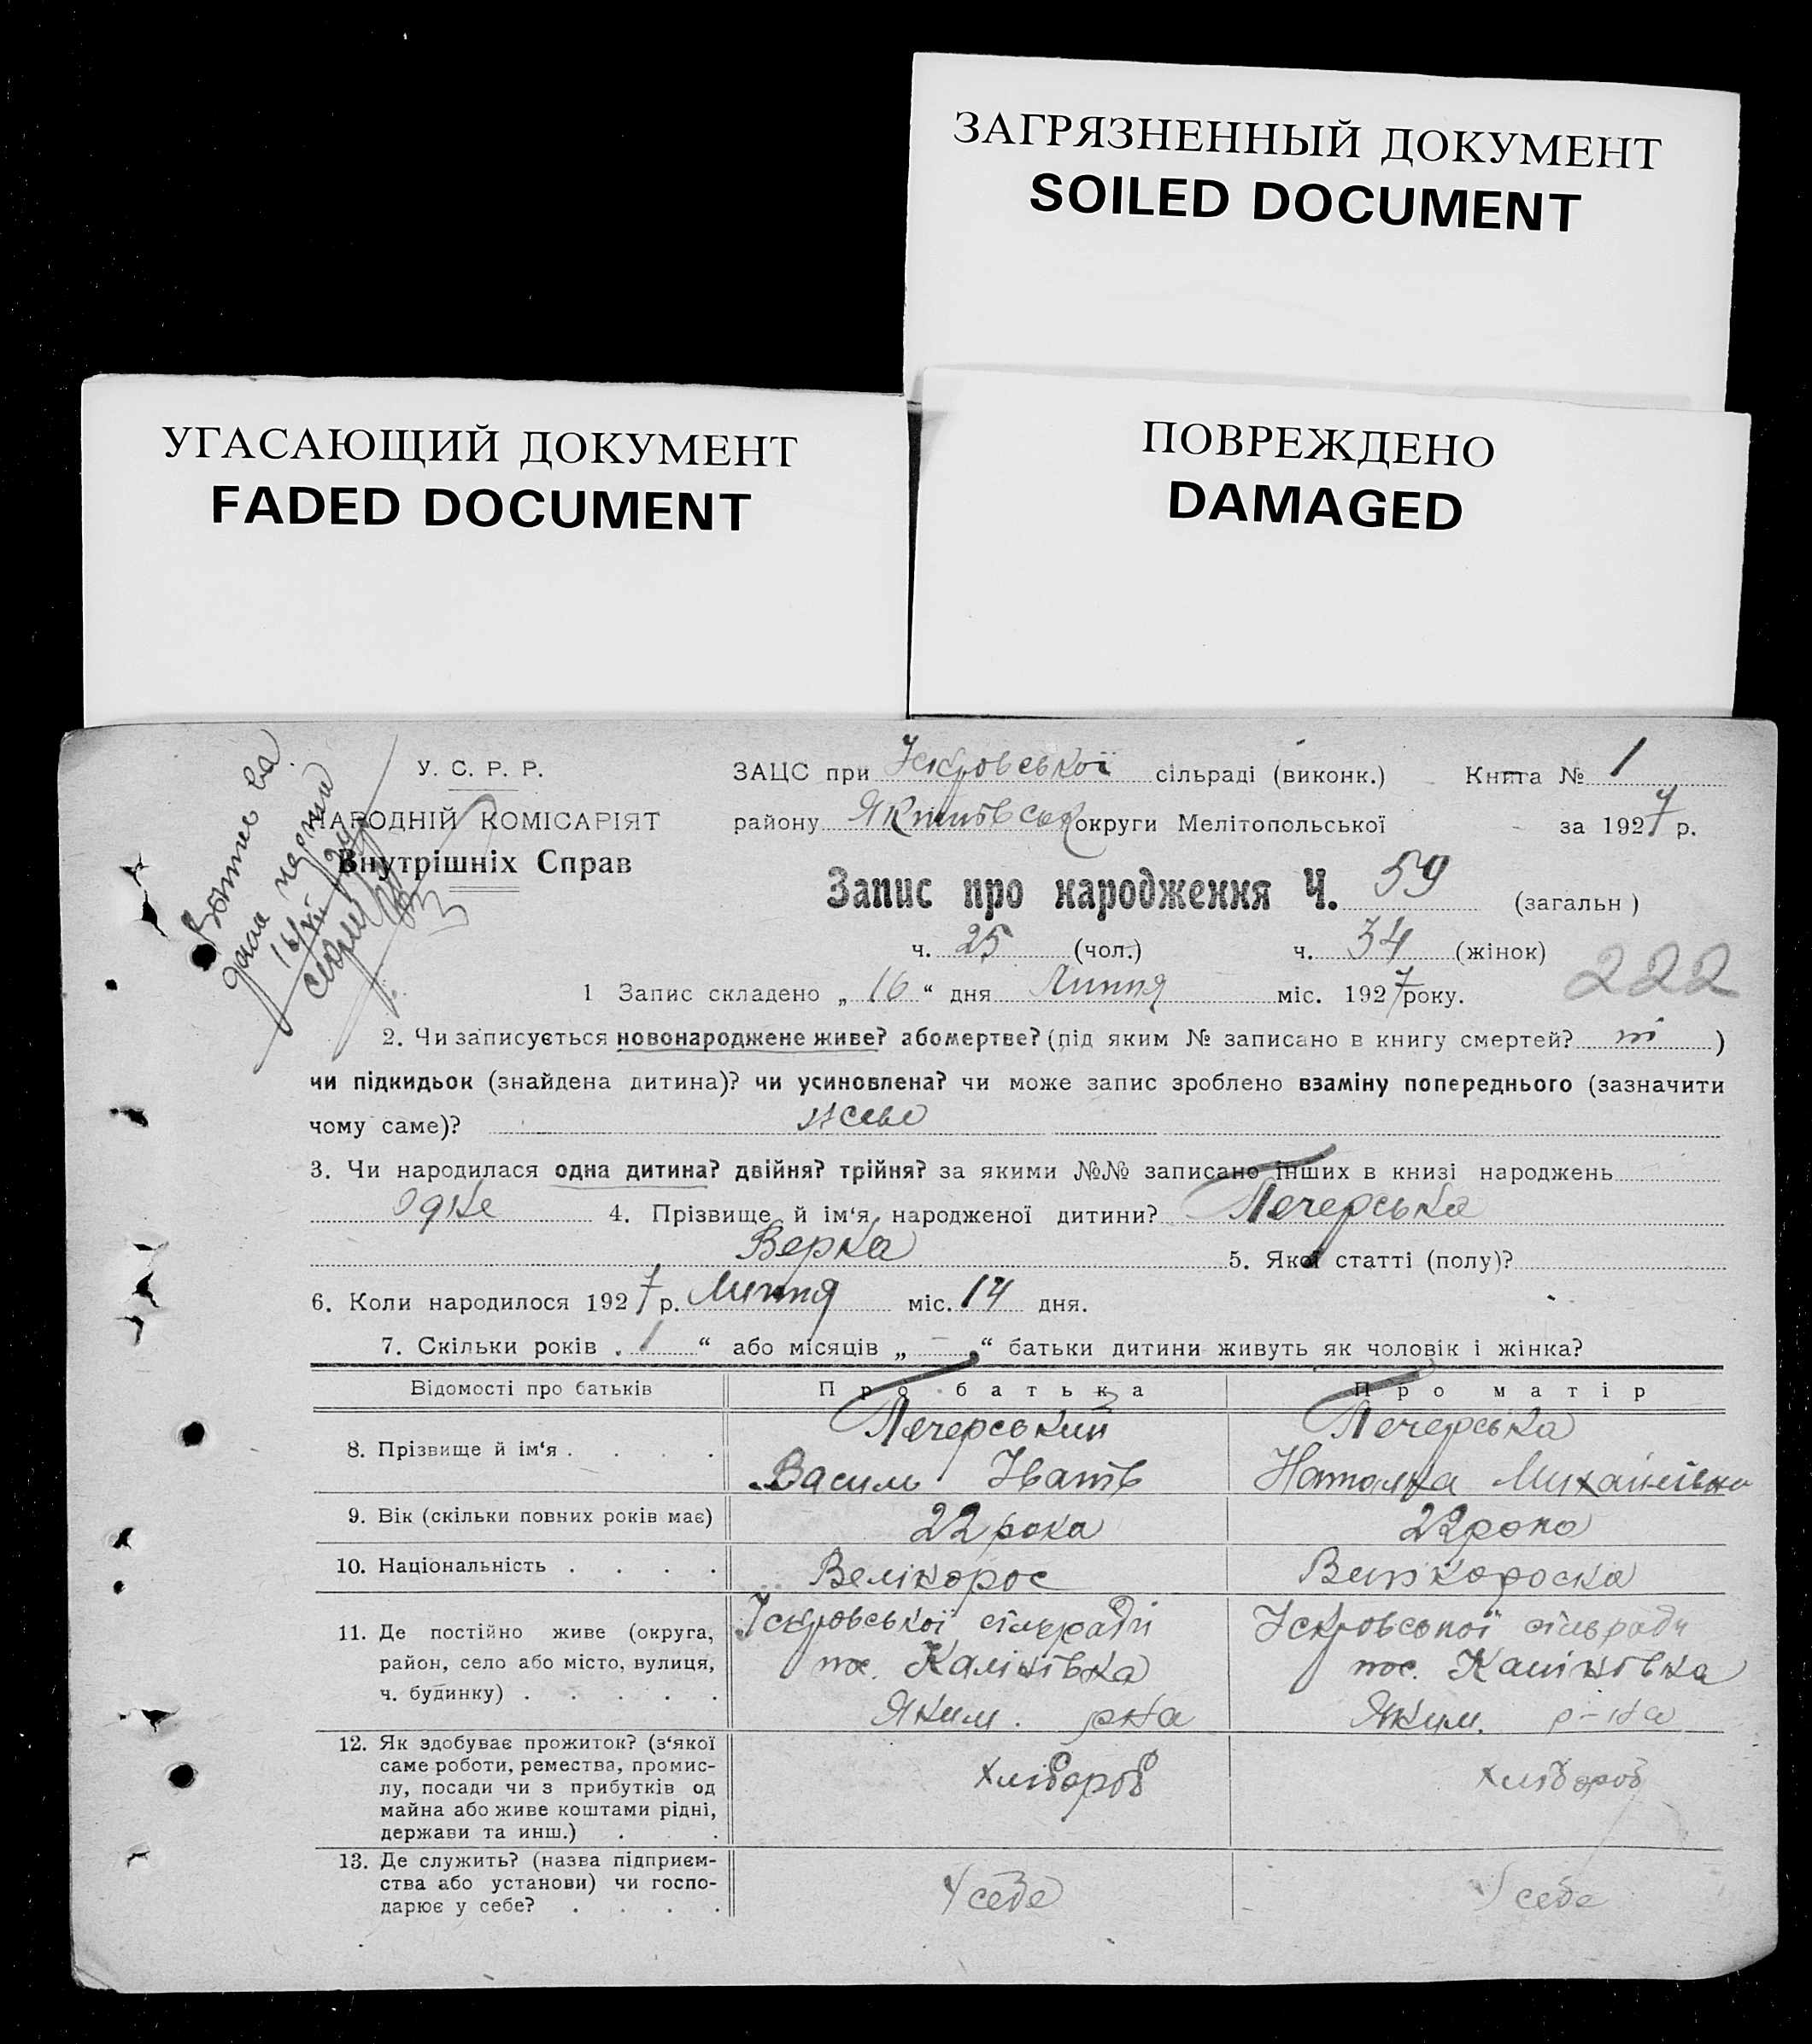 ЗАГРЯЗНЕННЫЙ ДОКУМЕНТ
SOILED DOCUMENT
УГАСАЮЩИЙ ДОКУМЕНТ
FADED DOCUMENT
ПОВРЕЖДЕНО
DAMAGED
У. С. Р. Р.
НАРОДНІЙ КОМІСАРІЯТ
Внутрішніх Справ
ЗАЦС при Іскровської сільраді (виконк.) Книга № 1
району Якимівськ округи Мелітопольської за 1927 р.
Запис про народження Ч. 59 (загальн)
ч. 25 (чол.) ч. 34 (жінок)
222
1 Запис складено „16“ дня Липня міс. 1927 року.
2. Чи записується новонароджене живе? або мертве? (під яким № записано в книгу смертей? ні)
чи підкидьок (знайдена дитина)? чи усиновлена? чи може запис зроблено взаміну попереднього (зазначити
чому саме)? живе
3. Чи народилася одна дитина? двійня? трійня? за якими №№ записано інших в книзі народжень
Одне 4. Прізвище й ім‘я народженої дитини? Печерська
Верка 5. Якої статті (полу)?
6. Коли народилося 1927 р. Липня міс. 14 дня.
7. Скільки років „1“ або місяців „—“ батьки дитини живуть як чоловік і жінка?
Відомості про батьків Про батька Про матір
8. Прізвище й ім‘я . . . . Печерський Печерська
Василь Іванів Наталка Михайлівна
9. Вік (скільки повних років має) 22 рока 22 рока
10. Національність . . . . Велікорос Велікороска
11. Де постійно живе (округа, Іскровської сільради Іскровської сільради
район, село або місто, вулиця, пос. Калінівка пос. Калінівка
ч. будинку) . . . . . Яким. рна Яким. р-на
12. Як здобуває прожиток? (з‘якої
саме роботи, ремества, промис- хлібороб хлібороб
лу, посади чи з прибутків од
майна або живе коштами рідні,
держави та инш.) . .
13. Де служить? (назва підприєм-
ства або установи) чи госпо- У себе У себе
дарює у себе? . . . .